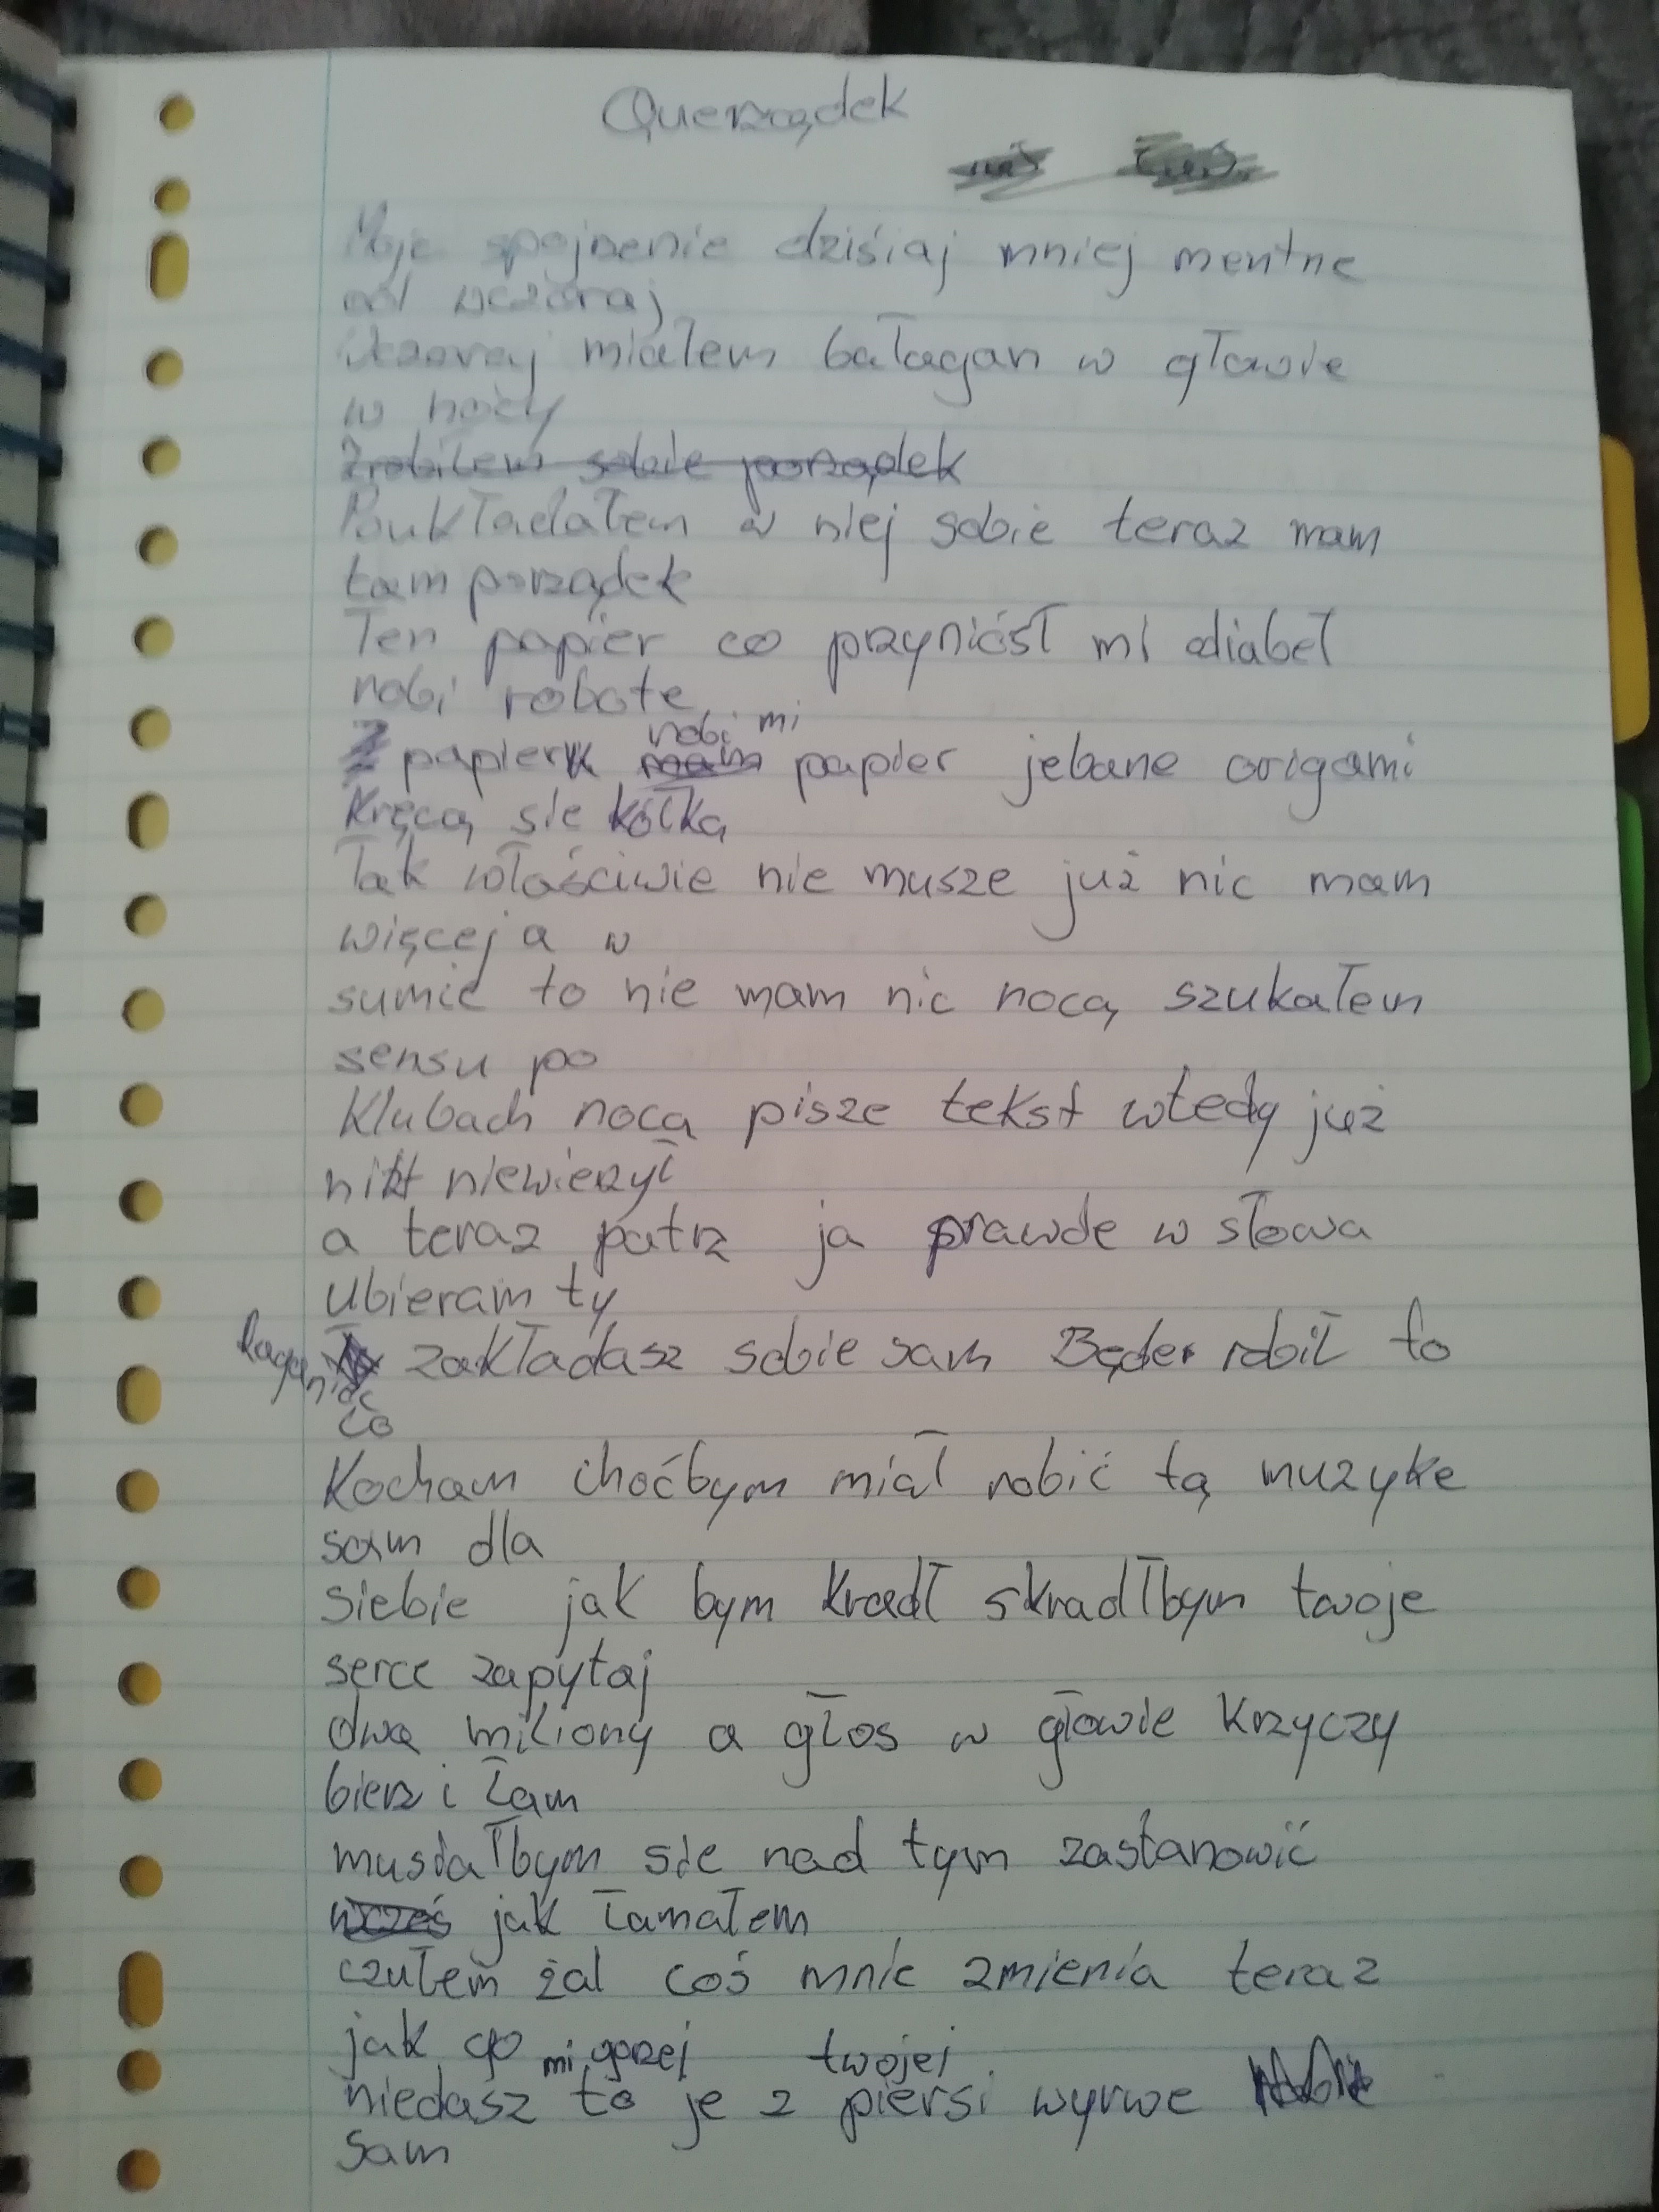 Querządek
Moje spojrzenie dziśiaj mniej mentne
od wczoraj
Wczoraj miałem bałagan w głowie
w nocy
Zrobiłem sobie porządek
Poukładałem w niej sobie teraz mam
tam porządek
Ten papier co przyniósł mi diabeł
robi robote
robi mi
papierk papier jebane origami
Kręcą sie kółka
Tak właściwie nie musze już nic mam
więcej a w
sumie to nie mam nic nocą szukałem
sensu po
Klubach nocą pisze tekst wtedy już
nikt niewierzył
a teraz patrz ja prawde w słowa
Ubieram ty
kaganiec zakładasz sobie sam Będe robił to
co
Kocham choćbym miał robić tą muzyke
sam dla
siebie jak bym kradł skradłbym twoje
serce zapytaj
dwa miliony a głos w głowie krzyczy
bierz i łam
musiałbym sie nad tym zastanowić
jak łamałem
czułem żal coś mnie zmienia teraz
jak go mi gorzej twojej
niedasz to je z piersi wyrwe
sam